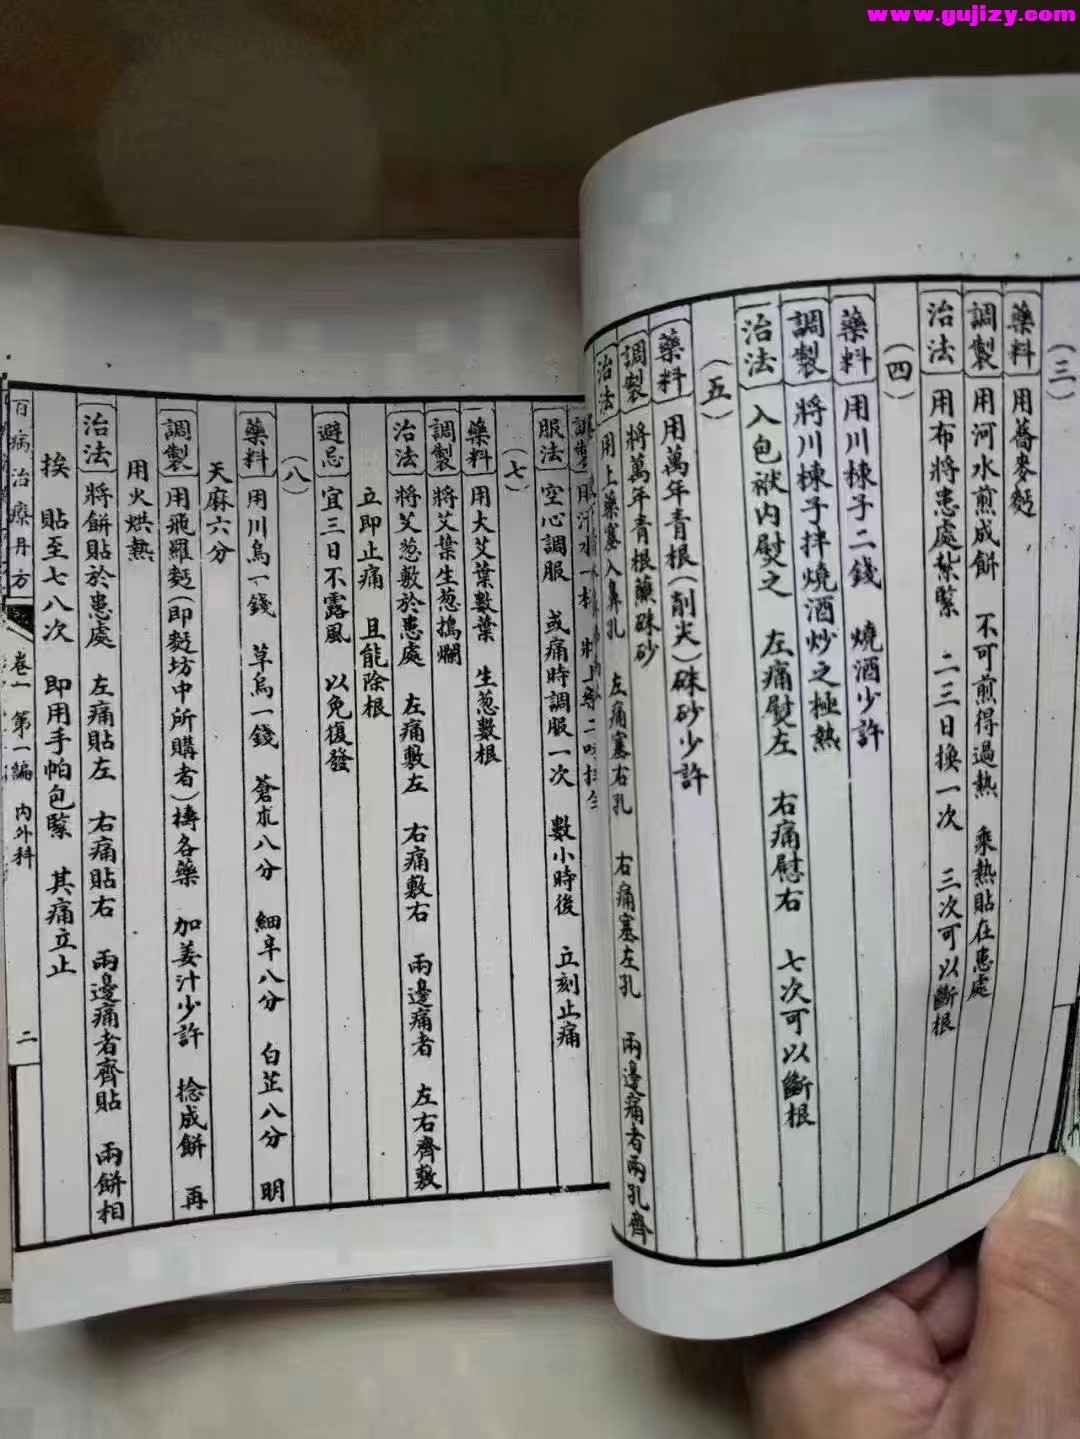 www.gujizy.com
（三）
藥料 用蕎麥麪
調製 用河水煎成餅 不可煎得過熱 乘熱貼在患處
治法 用布將患處紮緊 二三日換一次 三次可以斷根
（四）
藥料 用川楝子二錢 燒酒少許
調製 將川楝子拌燒酒炒之極熱
治法 入包袱內熨之 左痛熨左 右痛慰右 七次可以斷根
（五）
藥料 用萬年青根（削尖）硃砂少許
調製 將萬年青根蘸硃砂
治法 用上藥塞入鼻孔 左痛塞右孔 右痛塞左孔 兩邊痛者兩孔齊
服法 空心調服 或痛時調服一次 數小時後 立刻止痛
（七）
藥料 用大艾葉數葉 生葱數根
調製 將艾葉生葱搗爛
治法 將艾葱敷於患處 左痛敷左 右痛敷右 兩邊痛者 左右齊敷
立即止痛 且能除根
避忌 宜三日不露風 以免復發
（八）
藥料 用川烏一錢 草烏一錢 蒼朮八分 細辛八分 白芷八分 明
天麻六分
調製 用飛羅麪（即麪坊中所購者）擣各藥 加姜汁少許 捻成餅 再
用火烘熱
治法 將餅貼於患處 左痛貼左 右痛貼右 兩邊痛者齊貼 兩餅相
挨 貼至七八次 即用手帕包緊 其痛立止
百病治療丹方 卷一 第一編 內外科 二